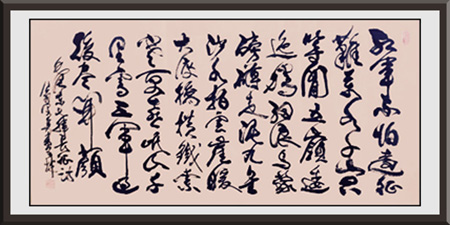 红軍不怕遠征
難萬水千山只
等閒五嶺逶
迤騰細浪烏蒙
磅礴走泥丸金
沙水拍雲崖暖
大渡橋橫鐵索
寒更喜岷山千
里雪三軍过
後尽開顏
毛澤東七律長征詩